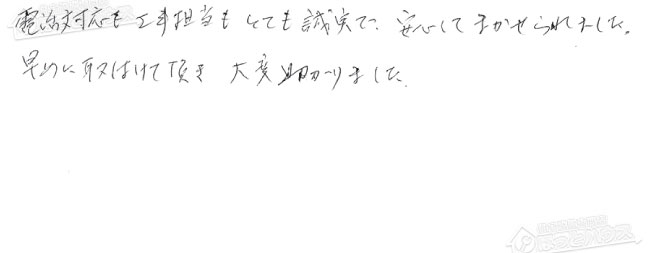 電話対応も工事担当もとても誠実で、安心してまかせられました。
早めに取付けて頂き 大変助かりました。